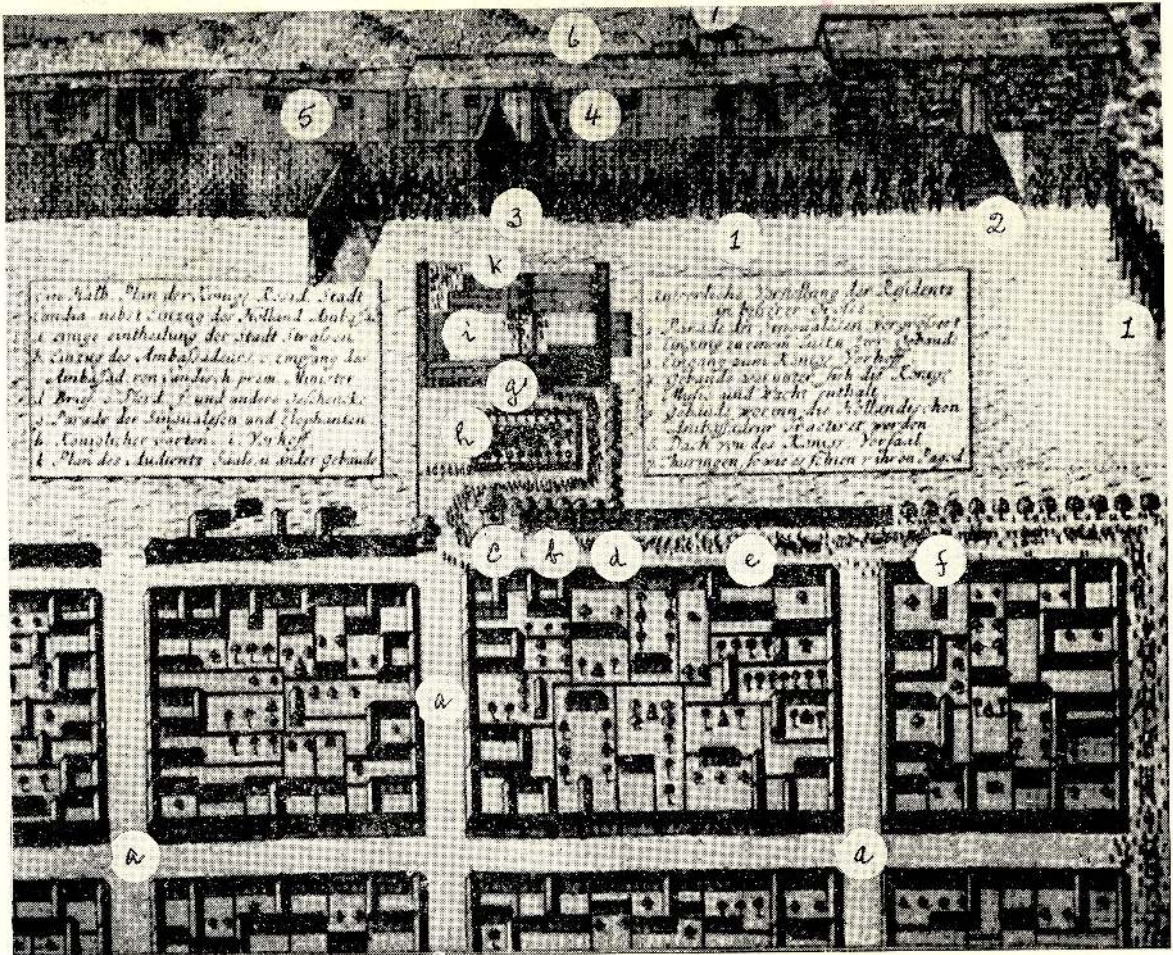 6
7
5
4
3
1
2
1
k
i
g
h
Plan der Königs Stadt
Candia nebst Einzug des Holland
a einige eintheilung der Stadt Strassen
b Einzug des Ambassadeurs, c empfang des
Ambassad. von Candisch prem. Minister
d Brief, e Pferd, f und andere
g Parade der Singualesen und Elephanten
h Königlicher Garten i Vorhoff
k Plan des Audientz Saals u. ander Gebäude
Vorstellung der Residentz
in
1 Parade der Singualesen vergrössert
2 Einzug zu einem
3 Eingang zum Königs Vorhoff
4 Gebäude worunter sich des Königs
Music und Wacht enthalt
5 Gebäude worinn die Holländischen
Ambassadeur tractiret werden
6 Dach von des Königs Vorsaal
7
c
b
d
e
f
a
a
a